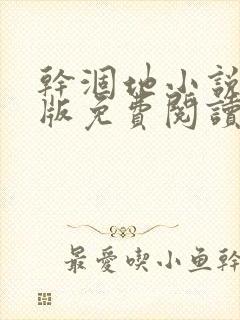 幹涸地小説
版免費閱讀
最愛喫小鱼幹